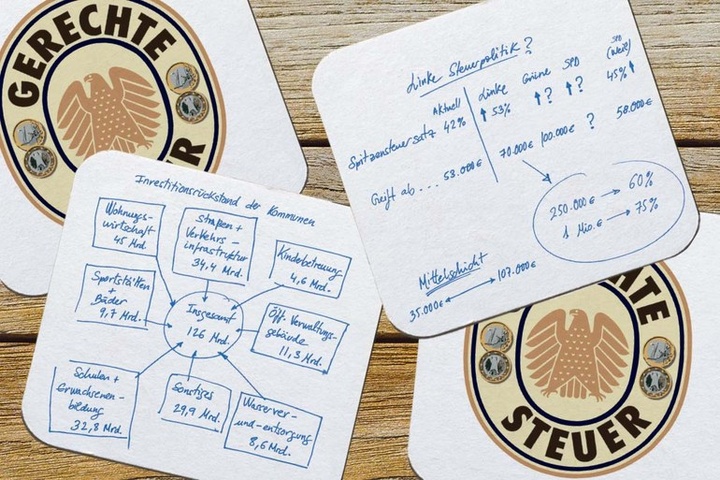 GERECHTE
ER
Linke Steuerpolitik?
Aktuell Linke Grüne SPD SPD (Weil)
Spitzensteuersatz 42% ↑ 53% ↑? ↑? 45% ↑
Greift ab... 53.000€ 70.000€ 100.000€ ? 58.000€
250.000€ → 60%
1 Mio.€ → 75%
Mittelschicht
35.000€ ↔ 107.000€
Investitionsrückstand der Kommunen
Wohnungs-
wirtschaft
45 Mrd
Straßen +
Verkehrs-
infrastruktur
34,4 Mrd.
Kindebetreuung
4,6 Mrd.
Sportstätten
+
Bäder
9,7 Mrd.
Insgesamt
126 Mrd.
Öff. Verwaltungs-
gebäude
11,3 Mrd.
Schulen +
Erwachsenen-
bildung
32,8 Mrd.
Sonstiges
29,9 Mrd.
Wasserver-
und-entsorgung
8,6 Mrd.
HTE
STEUER